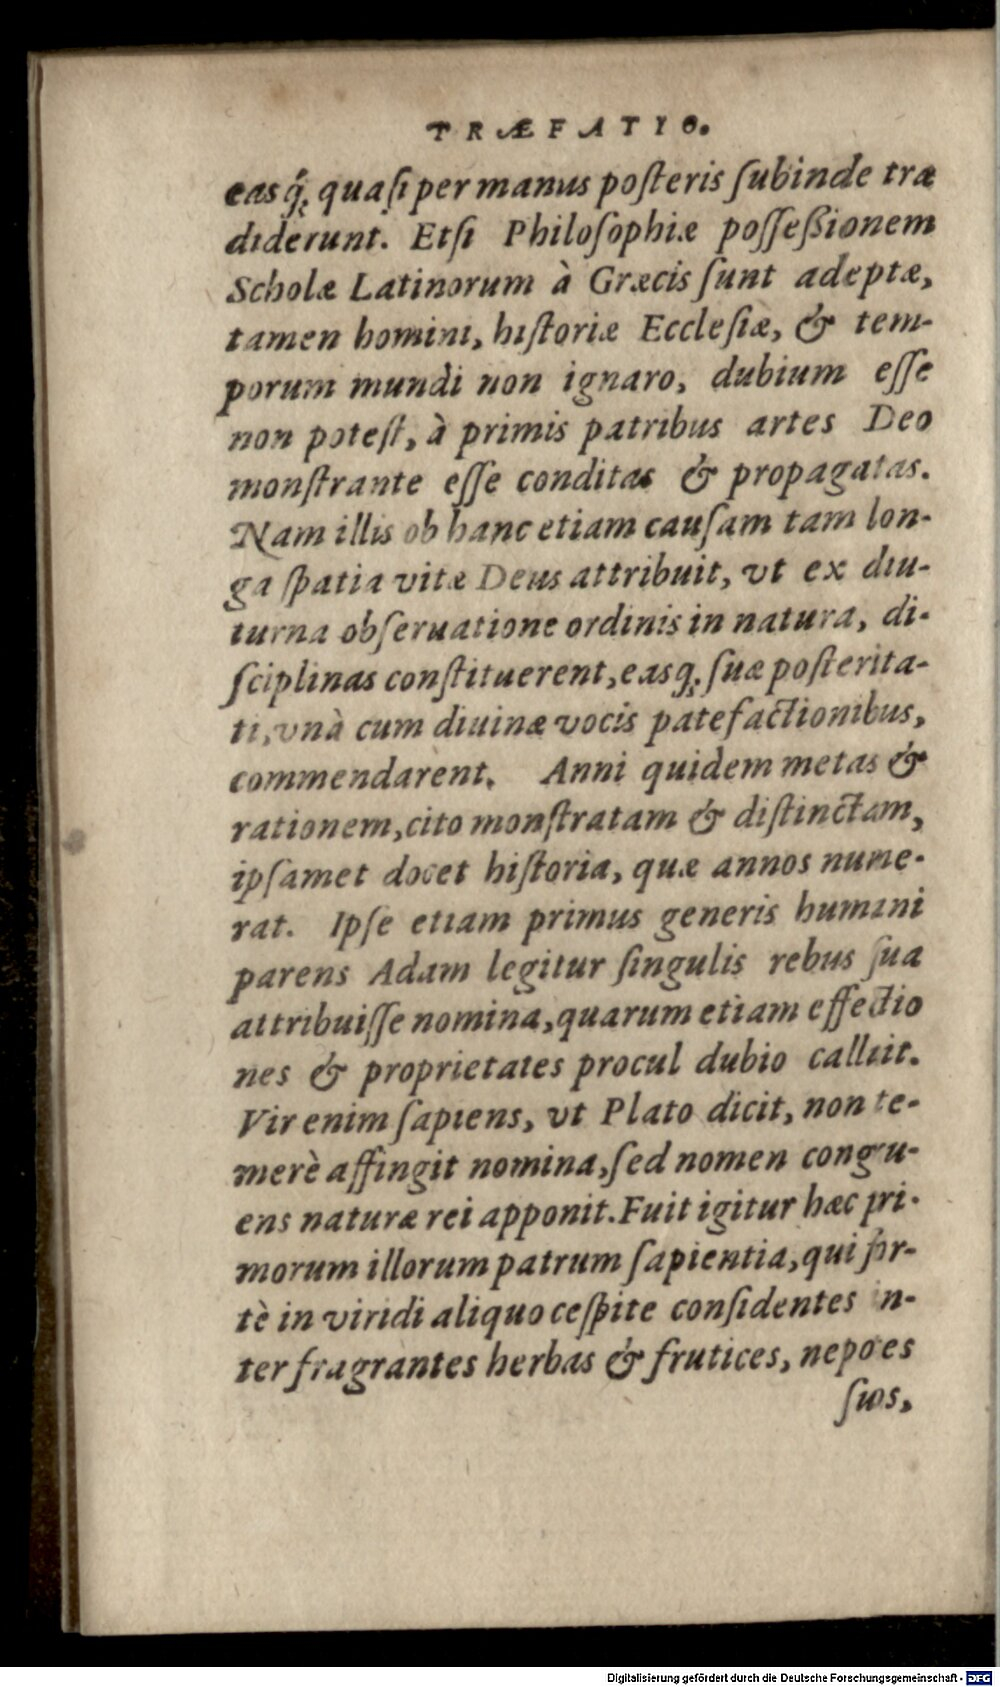 PRÆFATIO.
easq́; quaſi per manus poſteris ſubinde træ
diderunt. Etſi Philoſophiæ poſſeßionem
Scholæ Latinorum à Græcis ſunt adeptæ,
tamen homini, hiſtoriæ Eccleſiæ, & tem-
porum mundi non ignaro, dubium eſſe
non poteſt, à primis patribus artes Deo
monſtrante eſſe conditas & propagatas.
Nam illis ob hanc etiam cauſam tam lon-
ga ſpatia vitæ Deus attribuit, vt ex diu-
turna obſeruatione ordinis in natura, di-
ſciplinas conſtituerent, easq; ſuæ poſterita-
ti, vnà cum diuinæ vocis patefactionibus,
commendarent. Anni quidem metas &
rationem, cito monſtratam & diſtinctam,
ipſamet docet hiſtoria, quæ annos nume-
rat. Ipſe etiam primus generis humani
parens Adam legitur ſingulis rebus ſua
attribuiſſe nomina, quarum etiam effectio
nes & proprietates procul dubio calluit.
Vir enim ſapiens, vt Plato dicit, non te-
merè affingit nomina, ſed nomen congru-
ens naturæ rei apponit. Fuit igitur hæc pri-
morum illorum patrum ſapientia, qui for-
tè in viridi aliquo ceſpite conſidentes in-
ter fragrantes herbas & frutices, nepotes
ſuos,
Digitalisierung gefördert durch die Deutsche Forschungsgemeinschaft - DFG